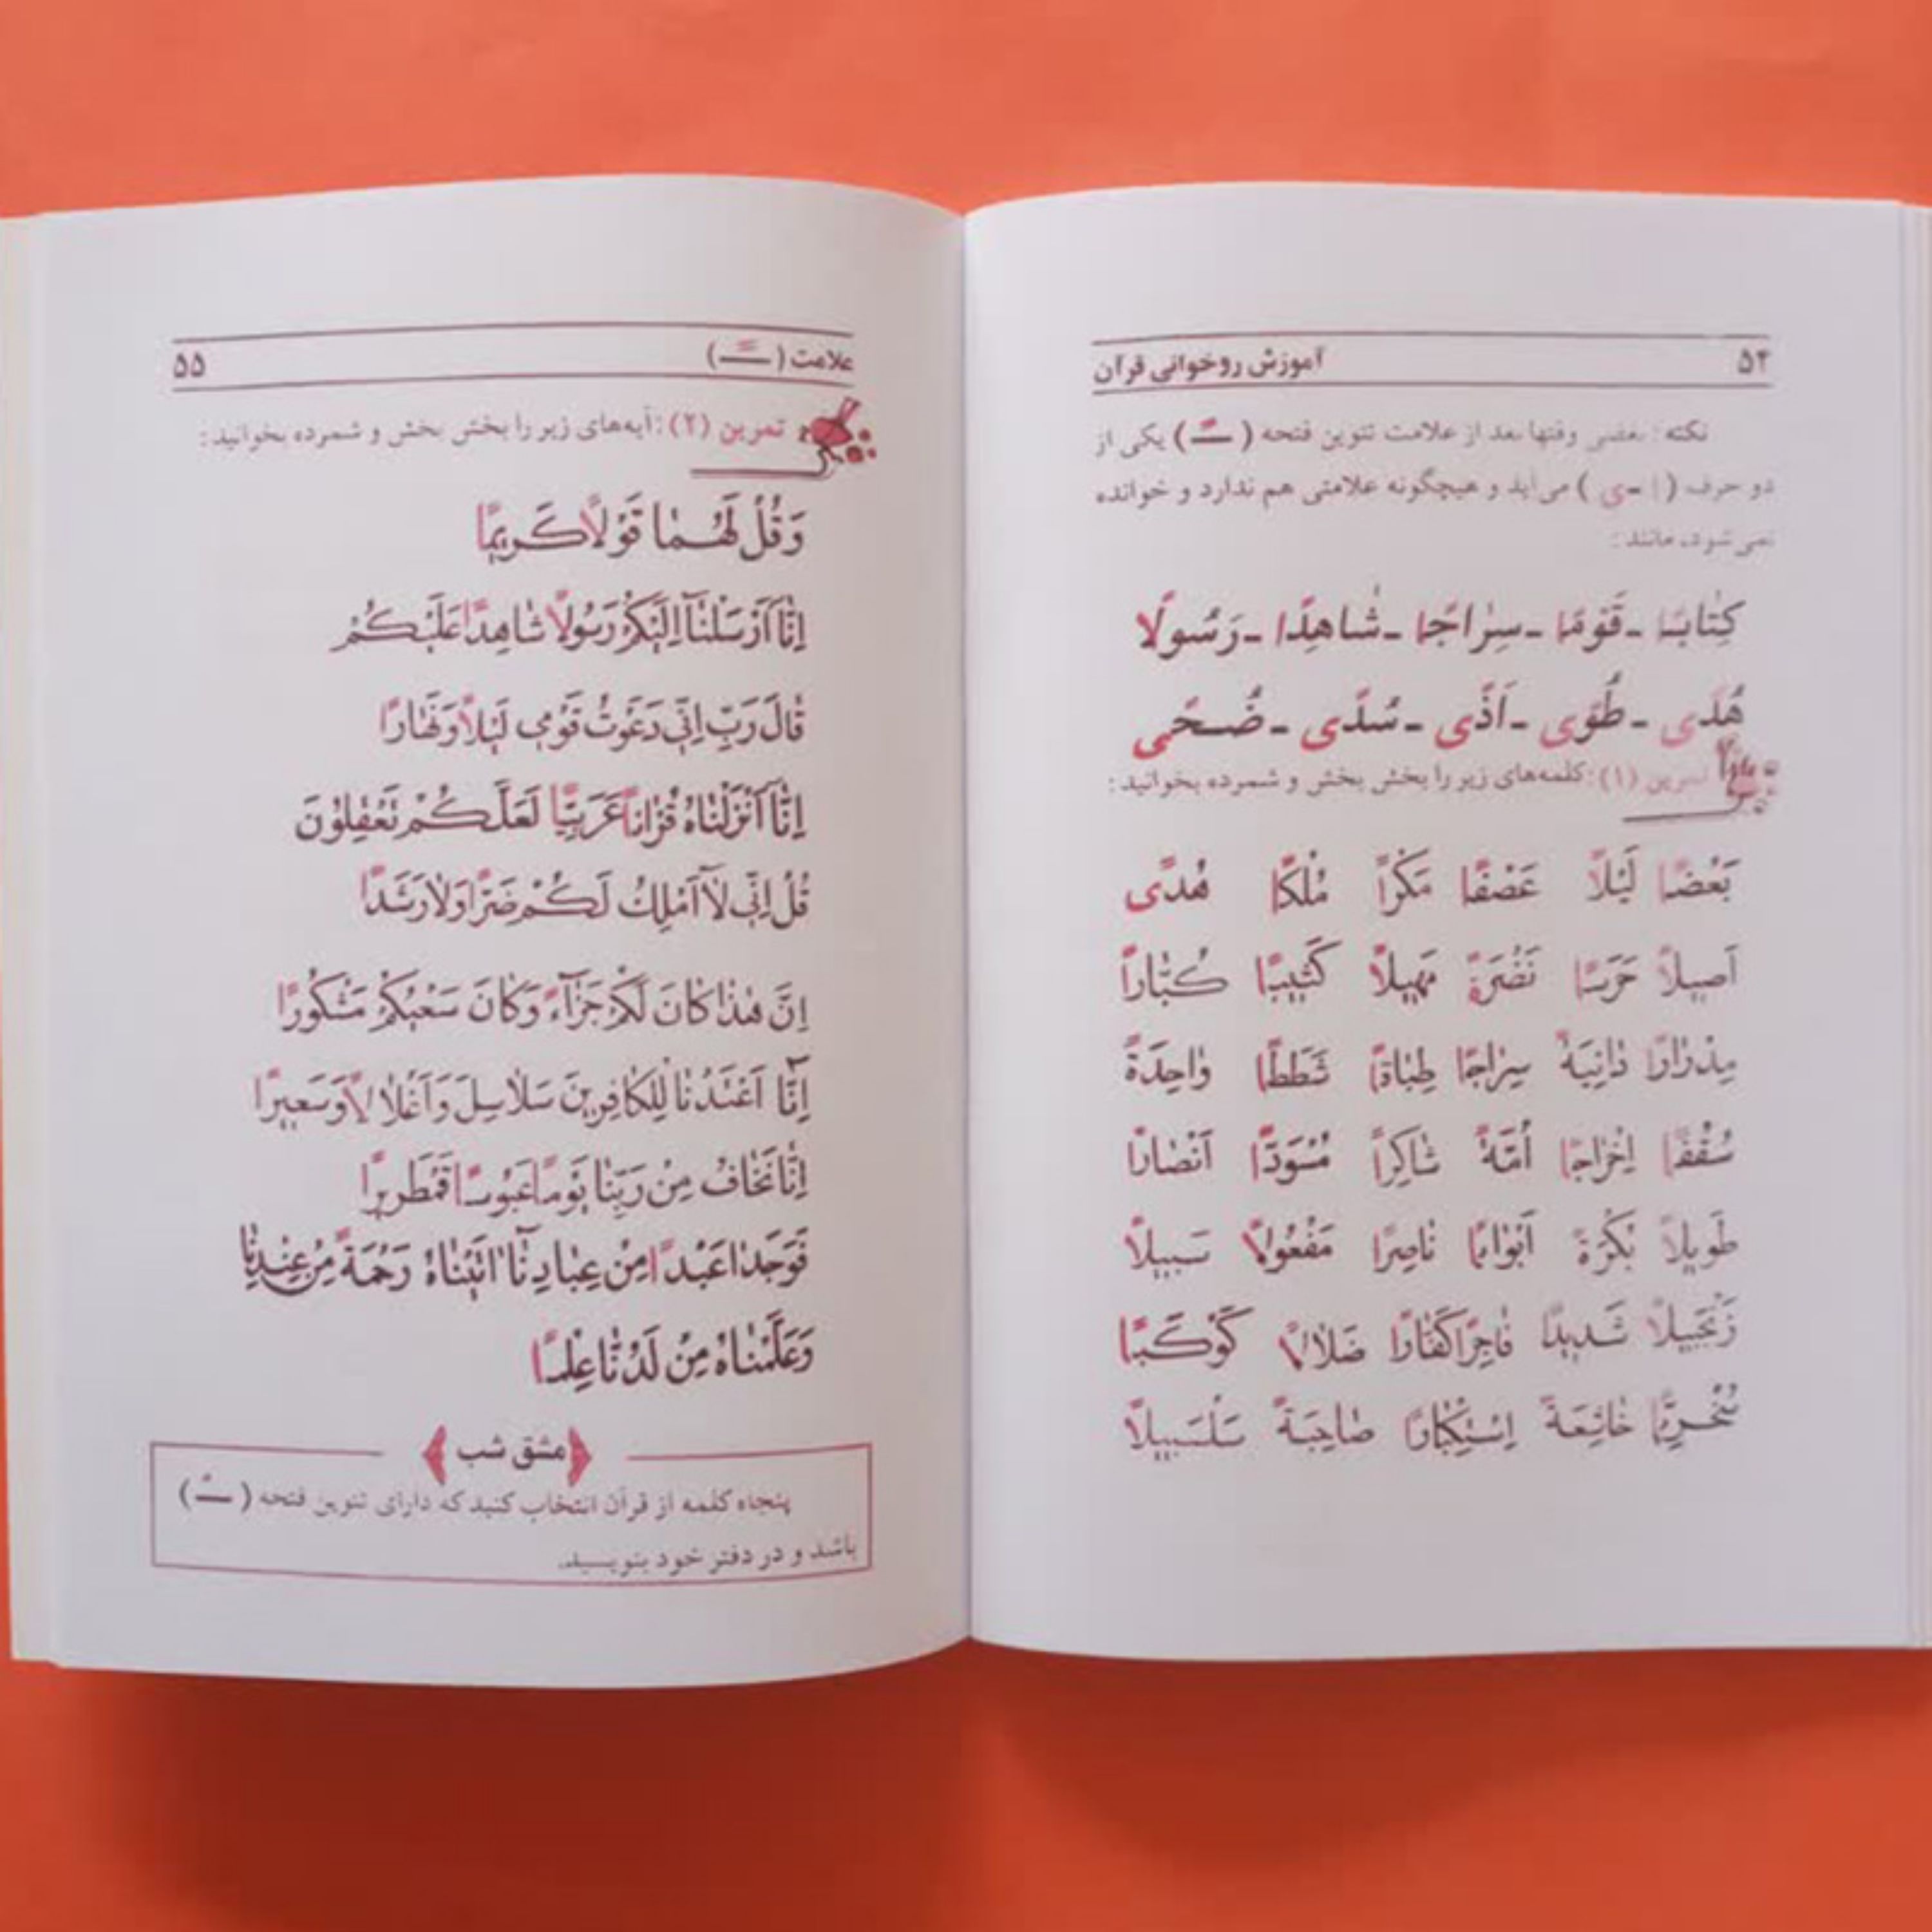 ۵۴ آموزش روخوانی قرآن
نکته: بعضی وقتها بعد از علامت تنوین فتحه (ـًـ) یکی از
دو حرف (ا - ی) می‌آید و هیچگونه علامتی هم ندارد و خوانده
نمی‌شود، مانند:
کِتٰابًا - قَوْمًا - سِرٰاجًا - شٰاهِدًا - رَسُولًا
هُدًی - طُوًی - اَذًی - سُدًی - ضُحًی
تمرین (۱): کلمه‌های زیر را بخش بخش و شمرده بخوانید:
بَعْضًا لَیْلًا عَصْفًا مَکْرًا مُلْکًا هُدًی
اَصیلًا حَرَسًا نَضْرَةً مَهیلًا کَثیبًا کُبّٰارًا
مِدْرٰارًا دٰانِیَةً سِرٰاجًا طِبٰاقًا شَطَطًا وٰاحِدَةً
سُقُفًا اِخْرٰاجًا اُمَّةً شٰاکِرًا مُسْوَدًّا اَنْصٰارًا
طَویلًا بُکْرَةً اَبْوٰابًا نٰاصِرًا مَفْعُولًا سَبیلًا
زَنْجَبیلًا شَدیدًا فٰاجِرًا کَفّٰارًا ضَلٰالًا کَوْکَبًا
سُخْرِیًّا خٰاشِعَةً اِسْتِکْبٰارًا صٰاحِبَةً سَلْسَبیلًا
علامت (ـًـ) ۵۵
تمرین (۲): آیه‌های زیر را بخش بخش و شمرده بخوانید:
وَقُلْ لَهُمٰا قَوْلًا کَریمًا
اِنّٰا اَرْسَلْنٰا اِلَیْکُمْ رَسُولًا شٰاهِدًا عَلَیْکُمْ
قٰالَ رَبِّ اِنّی دَعَوْتُ قَوْمی لَیْلًا وَنَهٰارًا
اِنّٰا اَنْزَلْنٰاهُ قُرْاٰنًا عَرَبِیًّا لَعَلَّکُمْ تَعْقِلُونَ
قُلْ اِنّی لٰا اَمْلِکُ لَکُمْ ضَرًّا وَلٰا رَشَدًا
اِنَّ هٰذٰا کٰانَ لَکُمْ جَزٰآءً وَکٰانَ سَعْیُکُمْ مَشْکُورًا
اِنّٰٓا اَعْتَدْنٰا لِلْکٰافِرینَ سَلٰاسِلَ وَاَغْلٰالًا وَسَعیرًا
اِنّٰا نَخٰافُ مِنْ رَبِّنٰا یَوْمًا عَبُوسًا قَمْطَریرًا
فَوَجَدٰا عَبْدًا مِنْ عِبٰادِنٰٓا اٰتَیْنٰاهُ رَحْمَةً مِنْ عِنْدِنٰا
وَعَلَّمْنٰاهُ مِنْ لَدُنّٰا عِلْمًا
مشق شب
پنجاه کلمه از قرآن انتخاب کنید که دارای تنوین فتحه (ـًـ)
باشد و در دفتر خود بنویسید.